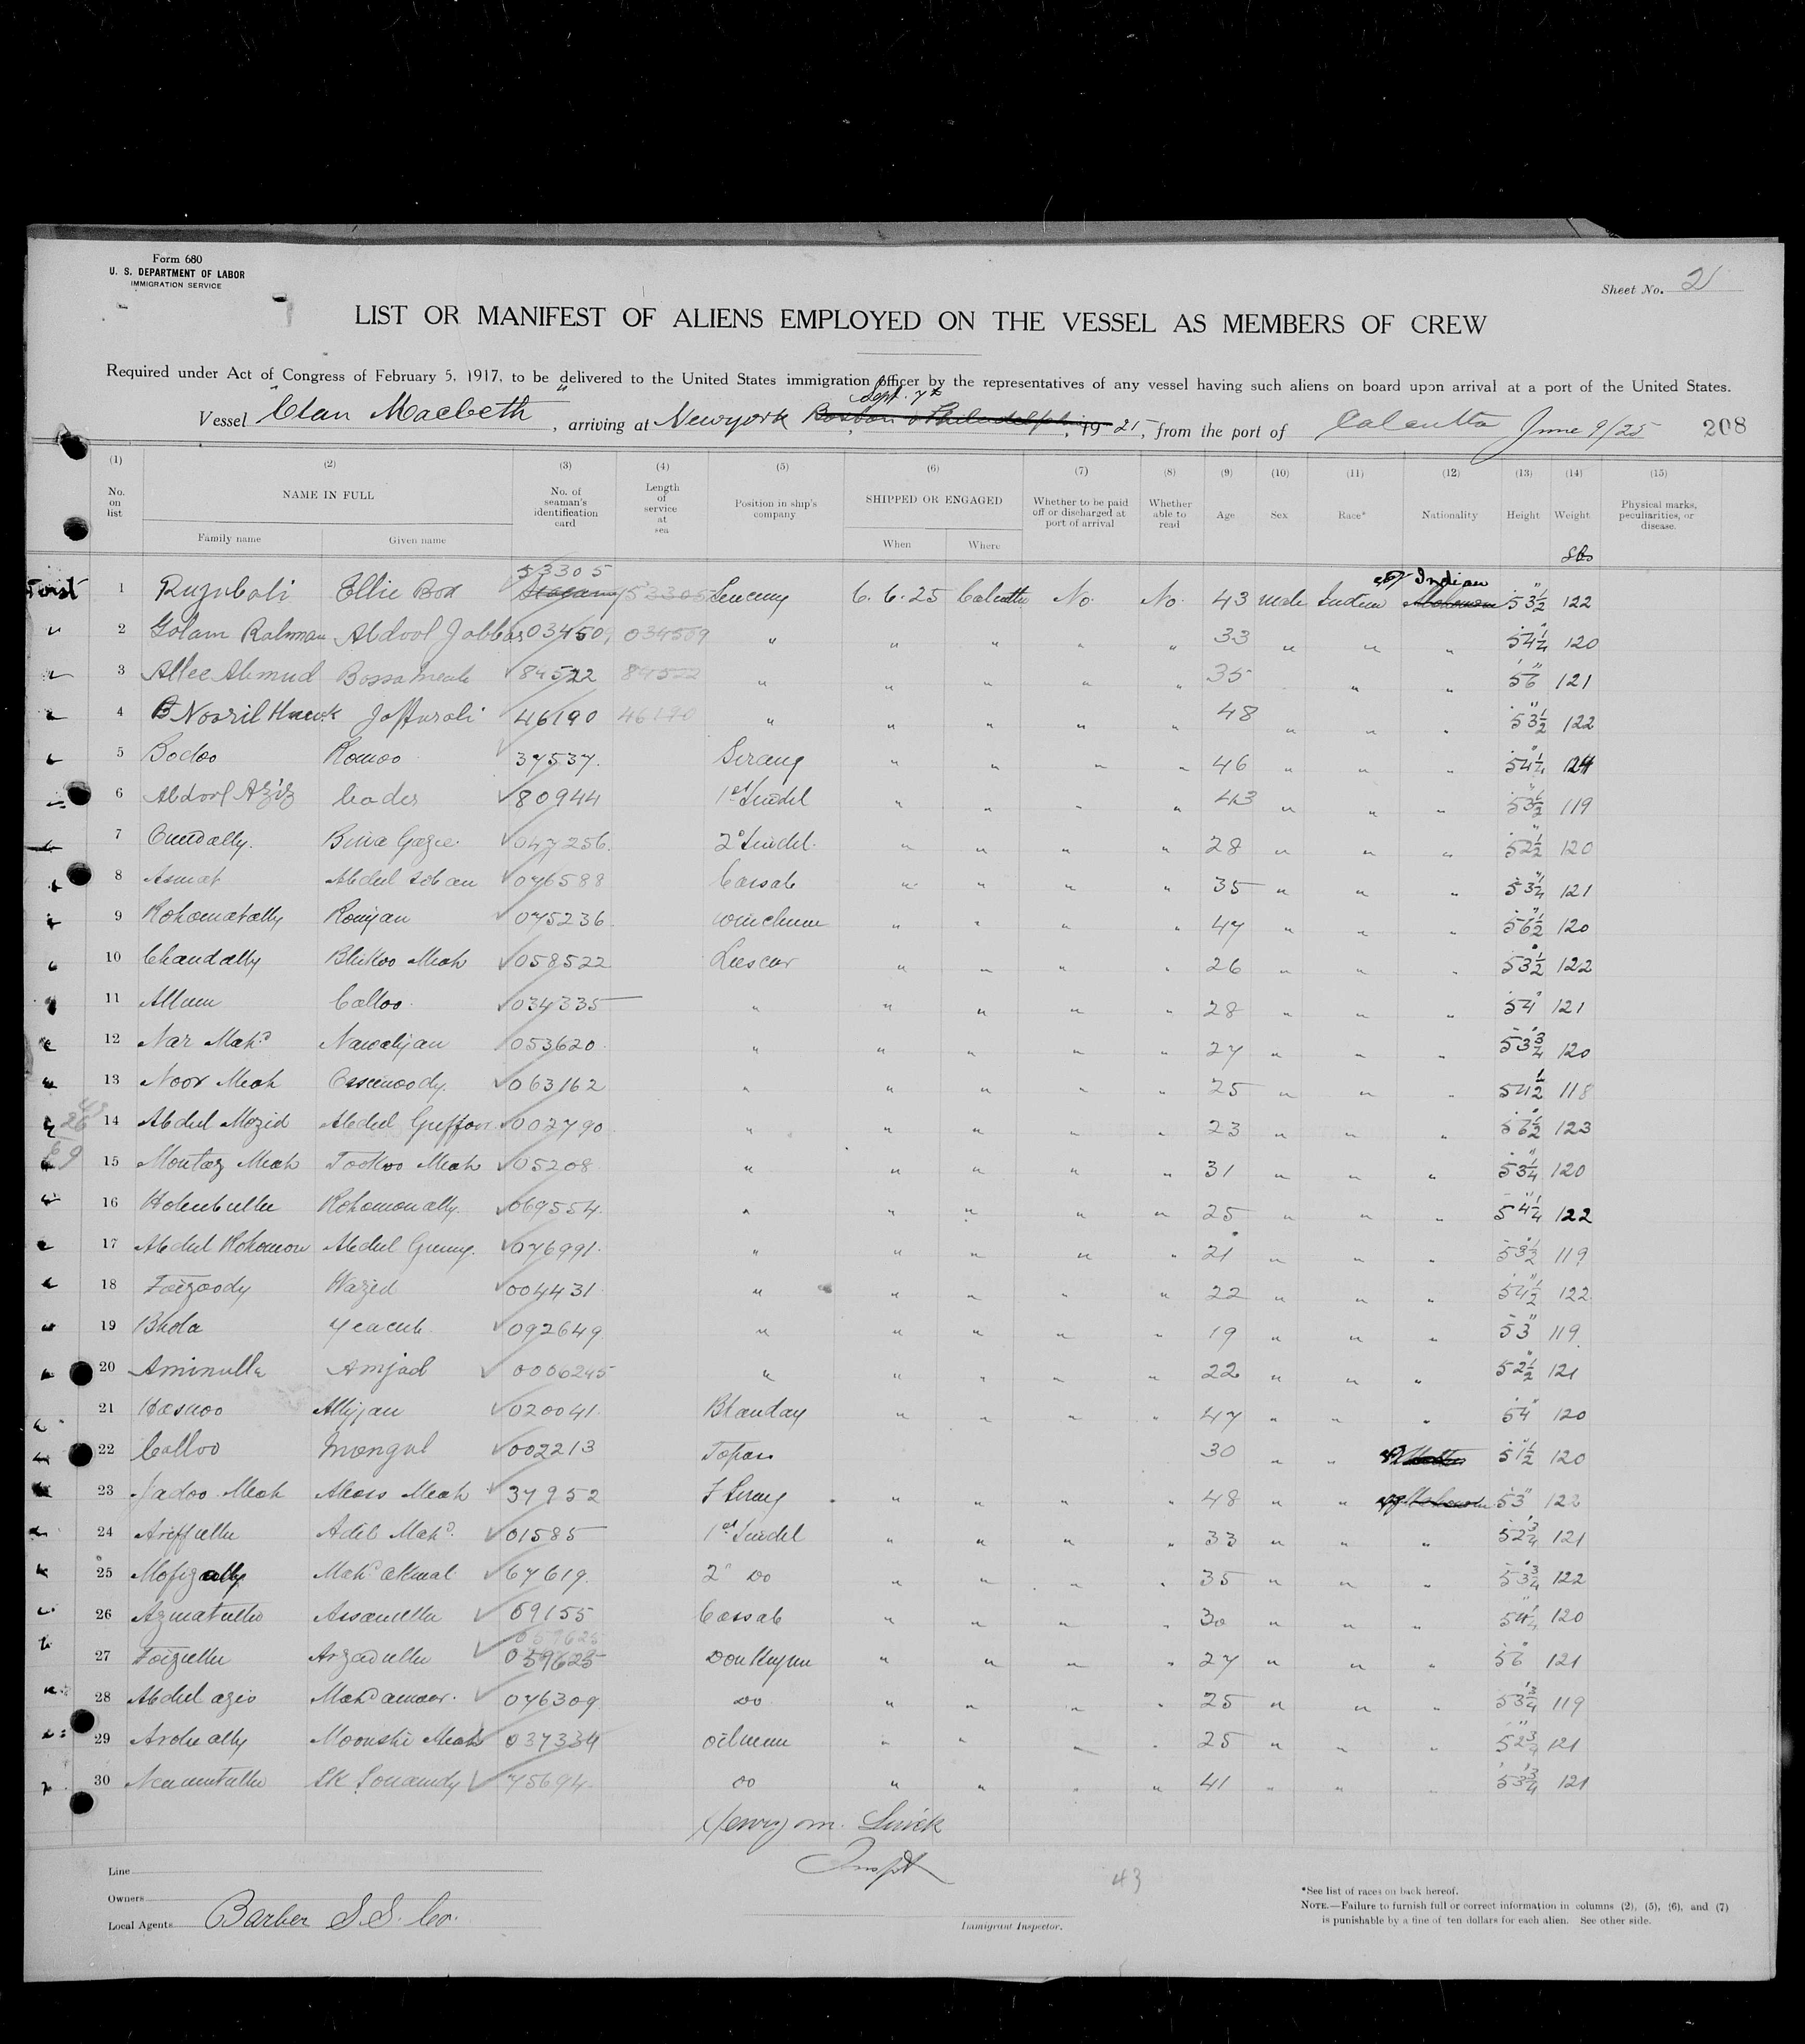 Form 680
U. S. DEPARTMENT OF LABOR
IMMIGRATION SERVICE
Sheet No. 2
LIST OR MANIFEST OF ALIENS EMPLOYED ON THE VESSEL AS MEMBERS OF CREW
Required under Act of Congress of February 5, 1917, to be delivered to the United States immigration officer by the representatives of any vessel having such aliens on board upon arrival at a port of the United States.
Sept. 7th
Vessel Clan Macbeth, arriving at Newyork Boston & Philadelphia, 1925, from the port of Calcutta June 9/25 208
(1) (2) (3) (4) (5) (6) (7) (8) (9) (10) (11) (12) (13) (14) (15)
No. on list NAME IN FULL No. of seaman's identification card Length of service at sea Position in ship's company SHIPPED OR ENGAGED Whether to be paid off or discharged at port of arrival Whether able to read Age Sex Race* Nationality Height Weight Physical marks, peculiarities, or disease.
Family name Given name When Where
lbs
53305 Indian
1 Ellie Box 53305 6.6.25 Calcutta No. No. 43 male Indian 5 3½ 122
2 Golam Rahman Abdool Jabbar 034509 034509 " " " " " 33 " " " 5 4¼ 120
3 Allee Ahmud 89522 89522 " " " " " 35 " " 5 6 121
4 Jaffurali 46190 46190 " " " " " 48 " " " 5 3½ 122
5 Bodoo Romoo 37537 Serang " " " " 46 " " " 5 4¼ 124
6 Abdool Aziz Cader 80944 1st Tindel " " " " 43 " " " 5 3½ 119
7 047256 2d Tindel " " " " 28 " " " 5 2½ 120
8 Asmat Abdul Soban 076588 Cassab " " " " 35 " " " 5 3¼ 121
9 Rohomatally Romjan 075236 " " " " 47 " " " 5 6½ 120
10 Chandally Bhikoo Meah 058522 Lascar " " " " 26 " " " 5 3½ 122
11 Allum Calloo 034335 " " " " " 28 " " " 5 4 121
12 Nar Mahd Nawabjan 053620 " " " " " 27 " " " 5 3¾ 120
13 Noor Meah 063162 " " " " " 25 " " " 5 4½ 118
14 Abdul Mozid Abdul Guffoor 002790 " " " " " 23 " " " 5 6½ 123
15 Montaz Meah Tookoo Meah 05208 " " " " " 31 " " " 5 3¼ 120
16 Rohomonally 069554 " " " " " 25 " " " 5 4¼ 122
17 Abdul Rohomon Abdul Gunny 076991 " " " " " 21 " " " 5 3½ 119
18 Foizoody Wazed 004431 " " " " " 22 " " " 5 4½ 122
19 Bhola Yeacub 092649 " " " " " 19 " " " 5 3 119
20 Aminulla Amjad 0006245 " " " " " 22 " " " 5 2½ 121
21 Hasnoo Allyjan 020041 Bhanday " " " " 47 " " " 5 4 120
22 Calloo Mongul 002213 Topas 30 " " 5 1½ 120
23 Jadoo Meah 37952 F Serang " " " " 48 " " 5 3 122
24 Ariffulla Adil Mahd 01585 1st Tindel " " " " 33 " " " 5 2¾ 121
25 Mofizally Mahd Akmal 67619 2" Do " " " " 35 " " " 5 3¾ 122
26 Azmatulla Assanulla 69155 Cassab " " " " 30 " " " 5 4¼ 120
059625
27 Foizulla Arzadulla 059625 Donkeyman " " " " 27 " " " 5 6 121
28 Abdul azis 076309 Do " " " " 25 " " " 5 3¾ 119
29 Moonshi Meah 037334 oilman " " " " 25 " " " 5 2¾ 121
30 Neamutulla Sk Sonaudy 75694 Do " " " " 41 " " " 5 3¾ 121
Inspt
Line
43
Owners
Local Agents Barber S.S. Co.
Immigrant Inspector.
*See list of races on back hereof.
NOTE.—Failure to furnish full or correct information in columns (2), (5), (6), and (7)
is punishable by a fine of ten dollars for each alien. See other side.